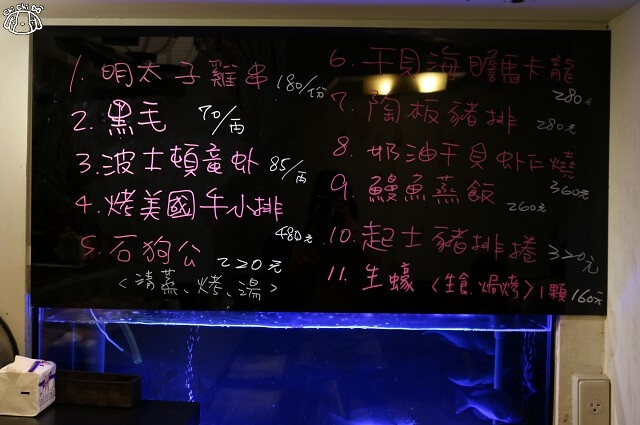 1. 明太子雞串 180/份
2. 黑毛 70/両
3. 波士頓竜虾 85/両
4. 烤美國牛小排 480元
5. 石狗公 220元
<清蒸、烤、湯>
6. 干貝海膽馬卡龍 280元
7. 陶板豬排 280元
8. 奶油干貝虾仁燒 360元
9. 鰻魚蒸飯 260元
10. 起士豬排捲 320元
11. 生蠔<生食.焗烤>1顆 160元